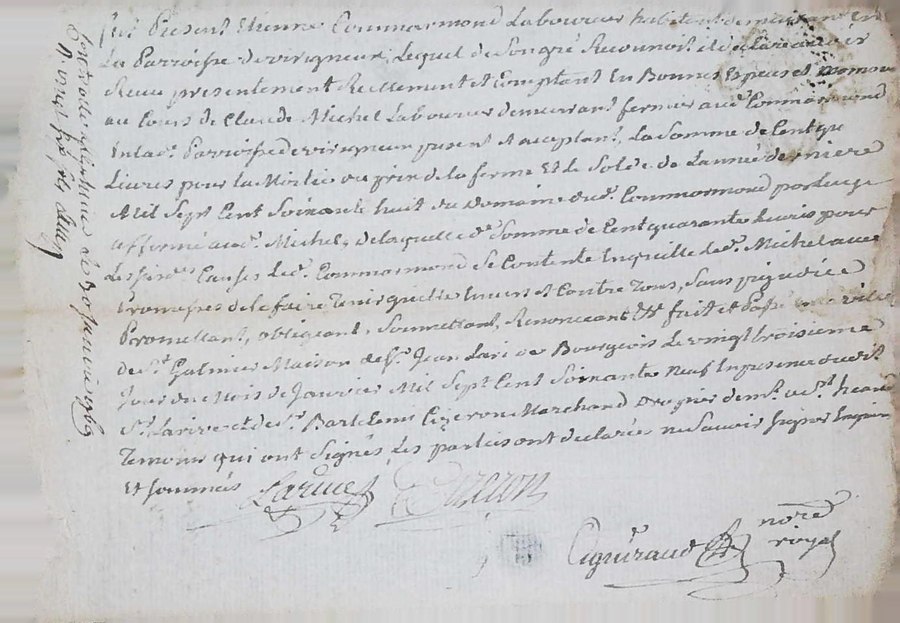 fut Present Etienne Commarmond Laboureur habitant de
La Parroisse de virigneux, Lequel de Son gré Reconnoit et declare avoir
Receu presentement Reellement et Comptant En Bonnes Especes et monoye
au Cours de Claude Michel Laboureur demeurant fermier aud. Commarmond
En lad. Parroisse de virigneux present et aceptant, La Somme de Cent
Livres pour la Moitié du prix de la ferme Et le Solde de L'année derniere
Mil Sept Cent Soixante huit du Domaine dud. Commarmond par Luy
affermé aud. Michel, de laquelle d. Somme de Cent quarante livres pour
Les Causes Led. Commarmond Se Contente En quitte led. Michel avec
Promesses de le faire Tenir quitte Envers et Contre Tous, Sans prejudice
Promettant, obligeant, Soumettant, Renonceant &c. fait et Passé
de St. Galmier Maison de Sr. Jean Bourgeois Le vingt troisieme
Jour du Mois de Janvier Mil Sept Cent Soixante Neuf En presence dud.
Sr. et de Sr. Bartelemi Marchand
Temoins qui ont Signés Les parties ont declarés ne Savoir Signer Enquis
Et Sommés
nore.
royal
janvier 1769